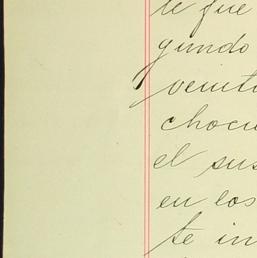 te fue
gundo
veinti
chocu
el sus
en los
te in